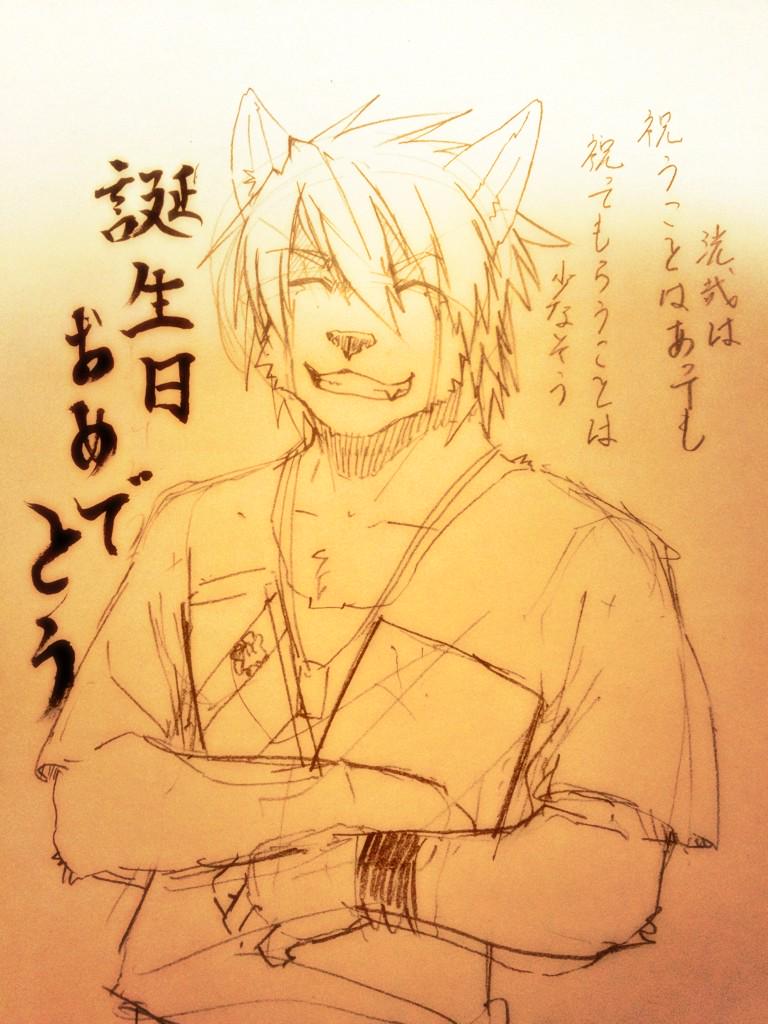 洸哉は
祝うことはあっても
祝ってもらうことは
少なそう
誕生日
おめで
とう